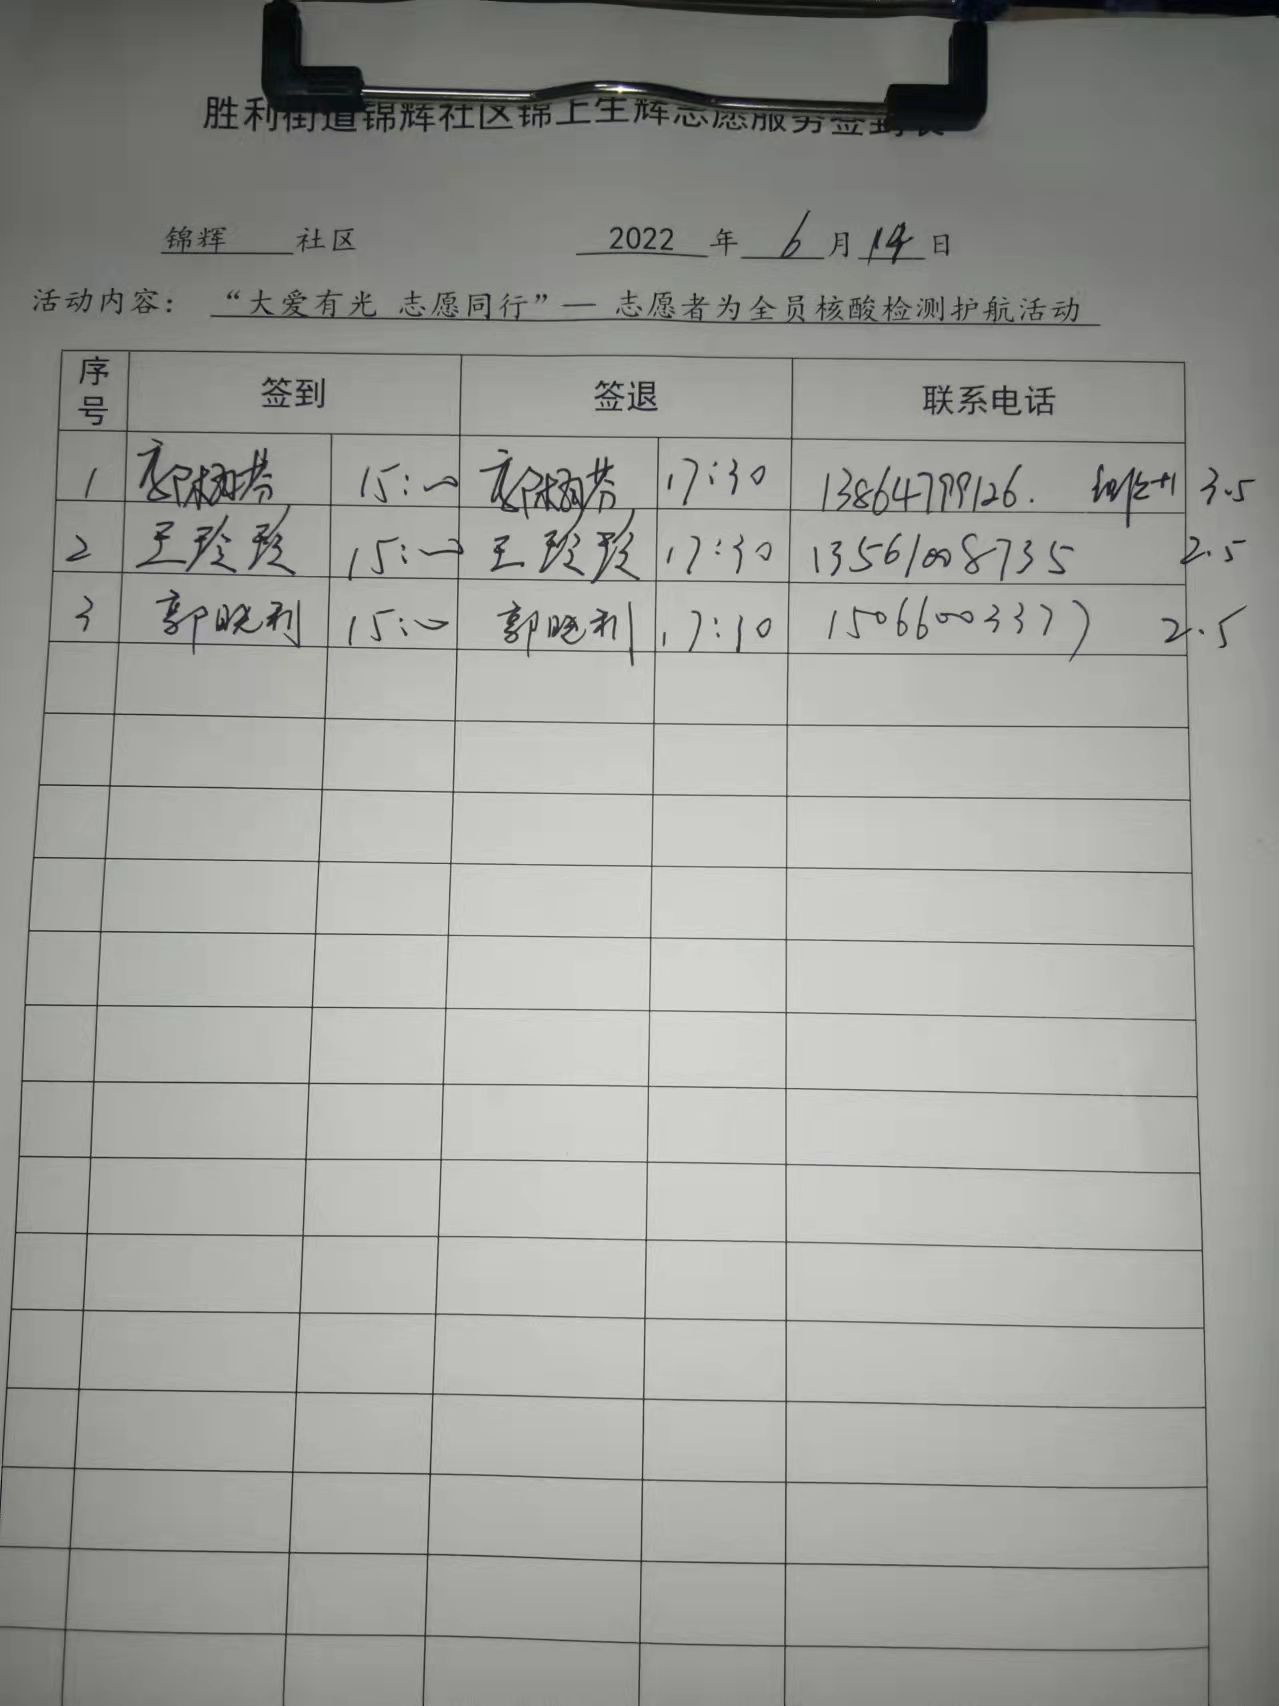 胜利街道锦辉社区锦上生辉志愿服务签到表
锦辉 社区 2022 年 6 月 14 日
活动内容： “大爱有光 志愿同行”— 志愿者为全员核酸检测护航活动
序号 签到 签退 联系电话
1 15:00 17:30 13864799126. 组织+1 3.5
2 王玲玲 15:00 王玲玲 17:30 13561008735 2.5
3 郭晓利 15:00 郭晓利 17:30 15066003377 2.5